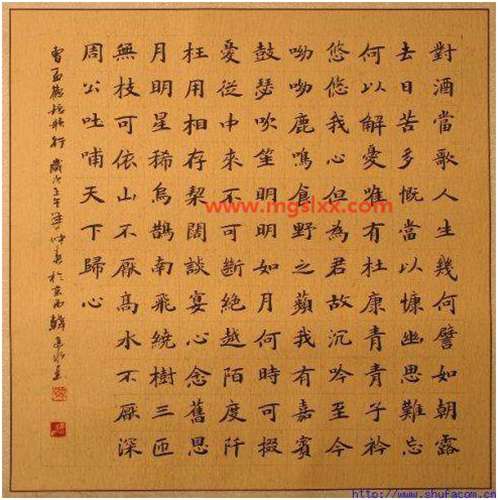 對酒當歌人生幾何譬如朝露
去日苦多慨當以慷幽思難忘
何以解憂惟有杜康青青子衿
悠悠我心但為君故沉吟至今
呦呦鹿鳴食野之蘋我有嘉賓
鼓瑟吹笙明明如月何時可掇
憂從中來不可斷絕越陌度阡
枉用相存契闊談宴心念舊恩
月明星稀烏鵲南飛繞樹三匝
無枝可依山不厭高水不厭深
周公吐哺天下歸心
曹孟德短歌行 歲次壬午 於京西
www.mgslxx.com
http://www.shufacom.com